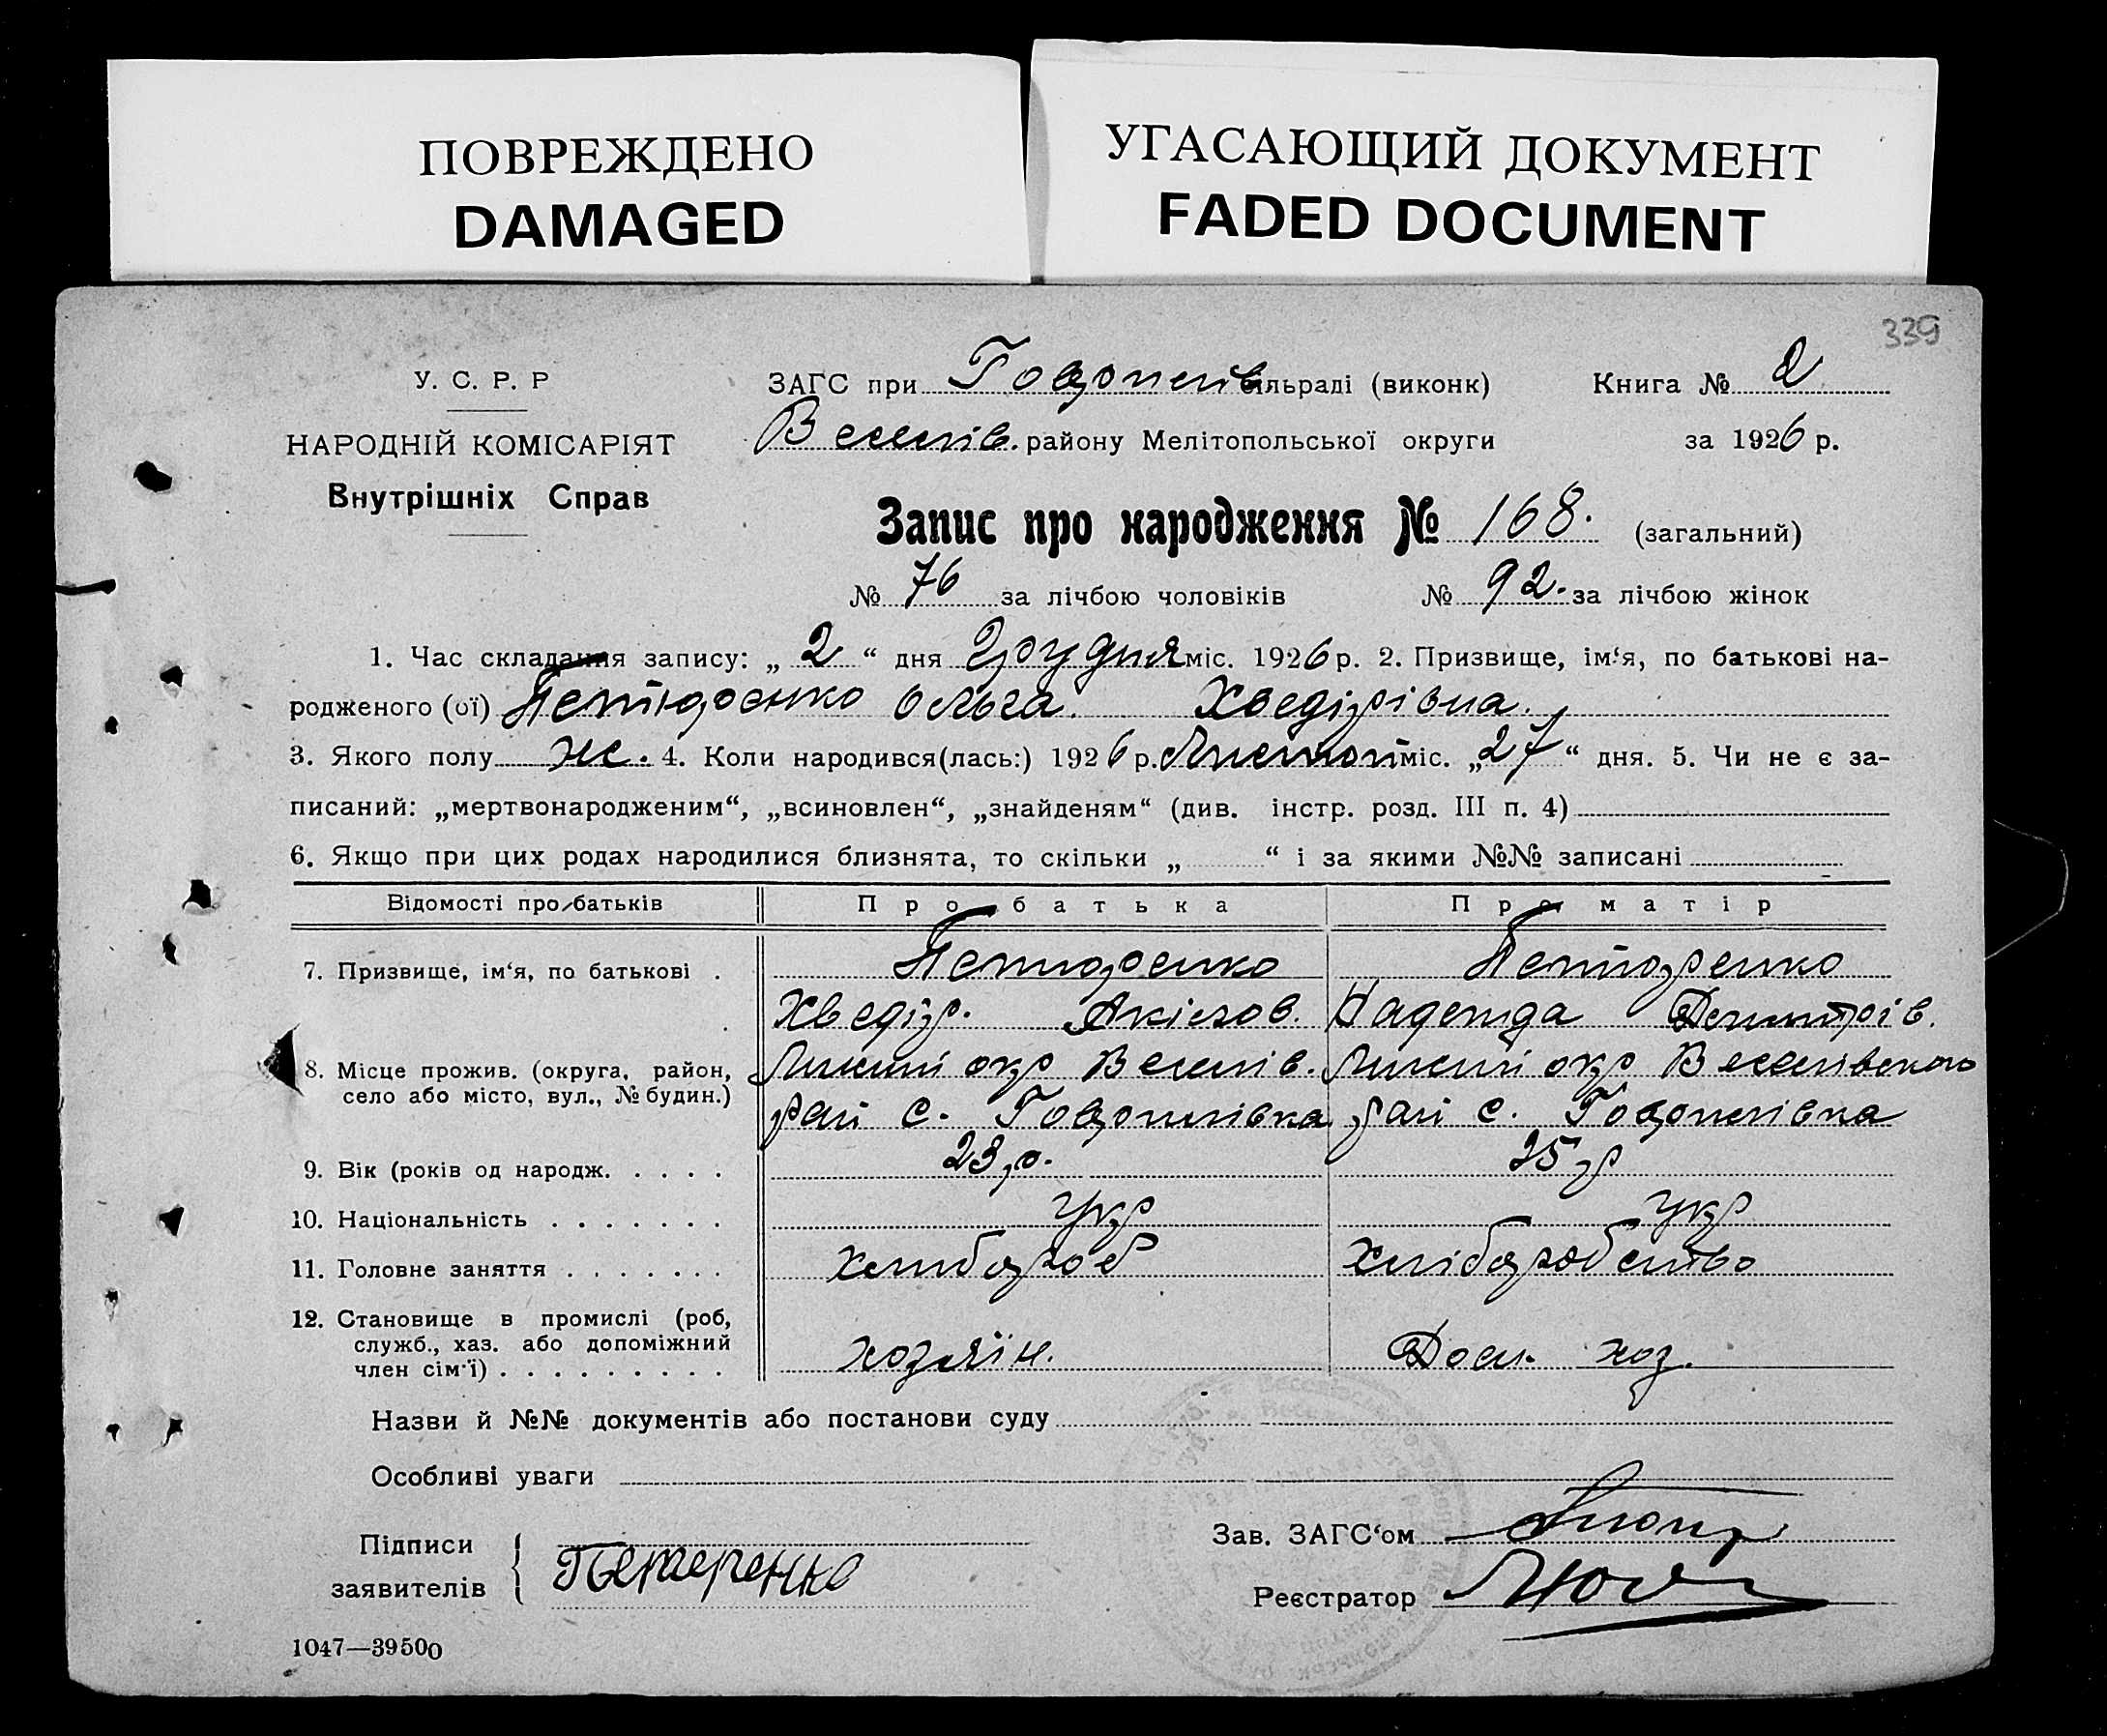 ПОВРЕЖДЕНО
DAMAGED
УГАСАЮЩИЙ ДОКУМЕНТ
FADED DOCUMENT
339
У. С. Р. Р
НАРОДНІЙ КОМІСАРІЯТ
Внутрішніх Справ
ЗАГС при сільраді (виконк) Книга № 2
Веселів. району Мелітопольської округи за 1926 р.
Запис про народження № 168. (загальний)
№ 76 за лічбою чоловіків № 92. за лічбою жінок
1. Час складання запису: „ 2 “ дня Грудня міс. 1926 р. 2. Призвище, ім‘я, по батькові на-
родженого (ої) Ольга. Хведірівна.
3. Якого полу ж. 4. Коли народився(лась:) 1926 р. Листоп міс. „27“ дня. 5. Чи не є за-
писаний: „мертвонародженим“, „всиновлен“, „знайденям“ (див. інстр. розд. III п. 4)
6. Якщо при цих родах народилися близнята, то скільки „ “ і за якими №№ записані
Відомості про батьків Про батька Про матір
7. Призвище, ім‘я, по батькові .
Хведір. Акімов. Надежда Дмитрів.
8. Місце прожив. (округа, район, село або місто, вул., № будин.)
окр Веселів. окр Веселівского
рай с. рай с.
9. Вік (років од народж. . . . . 23 р. 25 р
10. Національність . . . . . . . Укр Укр
11. Головне заняття . . . . . . . хлибороб хліборобство
12. Становище в промислі (роб, служб., хаз. або допоміжний член сім‘ї) . . . . . . . . . хозяїн. Дом. хоз.
Назви й №№ документів або постанови суду
Особливі уваги
Підписи
заявителів
Зав. ЗАГС‘ом
Реєстратор
1047—39500